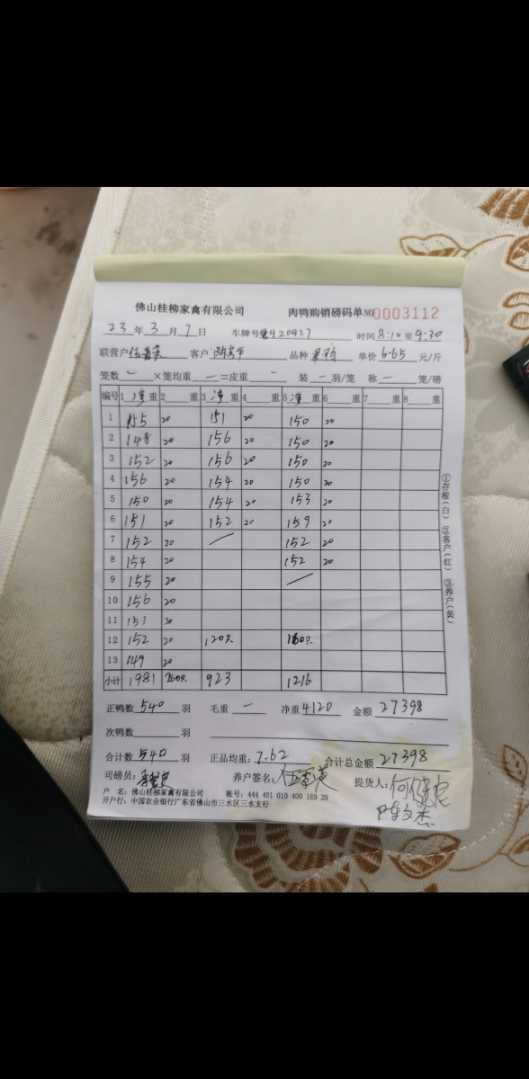 佛山桂柳家禽有限公司 肉鸭购销磅码单 NO 0003112
23 年 3 月 7 日 车牌号 时间 8:10 至 9:30
联营户 客户 品种 单价 6.65 元/斤
笼数 一 ×笼均重 一 =皮重 一 装 一 羽/笼 称 一 笼/磅
编号 1 净 重 2 重 3 净 重 4 重 5 净 重 6 重 7 重 8 重
1 155 20 151 20 150 20
2 148 20 156 20 150 20
3 152 20 156 20 150 20
4 156 20 154 20 150 20
5 150 20 154 20 153 20
6 151 20 152 20 159 20
7 152 20 / 152 20
8 154 20 152 20
9 155 20 /
10 156 20
11 151 20
12 152 20 120只 160只
13 149 20
小计 1981 260只 923 1216
①存根(白) ②客户(红) ③养户(黄)
正鸭数 540 羽 毛重 一 净重 4120 金额 27398
次鸭数 羽
合计数 540 羽 正品均重: 7.62 合计总金额 27398
司磅员: 养户签名: 提货人:
户 名: 佛山桂柳家禽有限公司 账号:
开户行: 中国农业银行广东省佛山市三水区三水支行